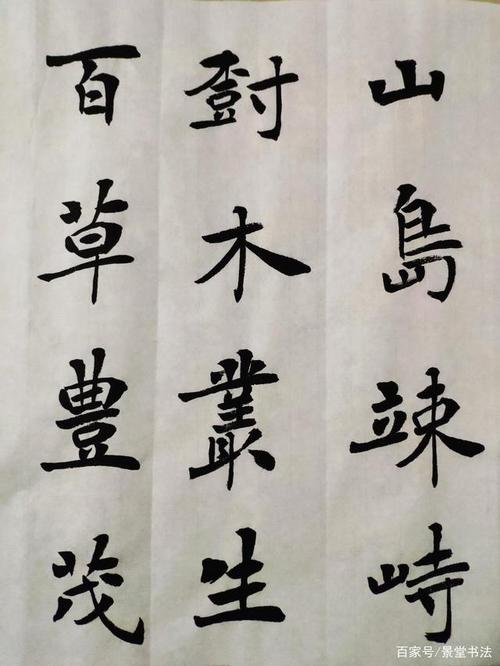 山島竦峙
尌木叢生
百草豊茂
百家号/景堂书法